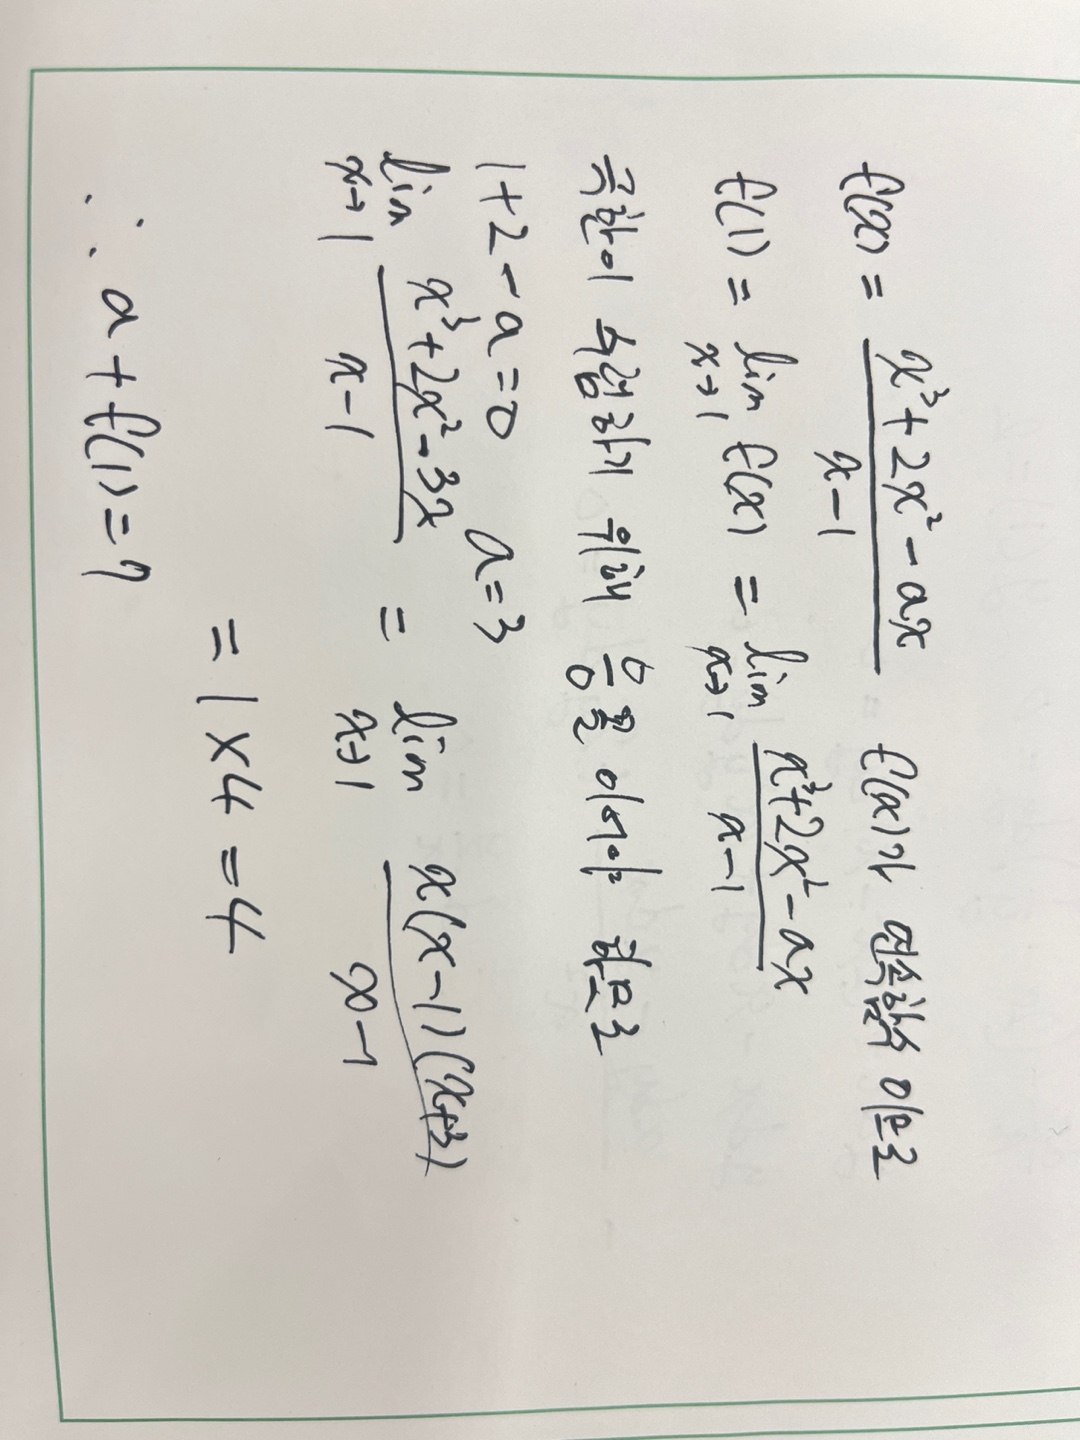 f(x) = (x³+2x²-ax)/(x-1) f(x)가 연속함수 이므로
f(1) = lim x→1 f(x) = lim x→1 (x³+2x²-ax)/(x-1)
극한이 수렴하기 위해 0/0 꼴 이어야 하므로
1+2-a=0 a=3
lim x→1 (x³+2x²-3x)/(x-1) = lim x→1 x(x-1)(x+3)/(x-1)
= 1×4 = 4
∴ a+f(1)=7